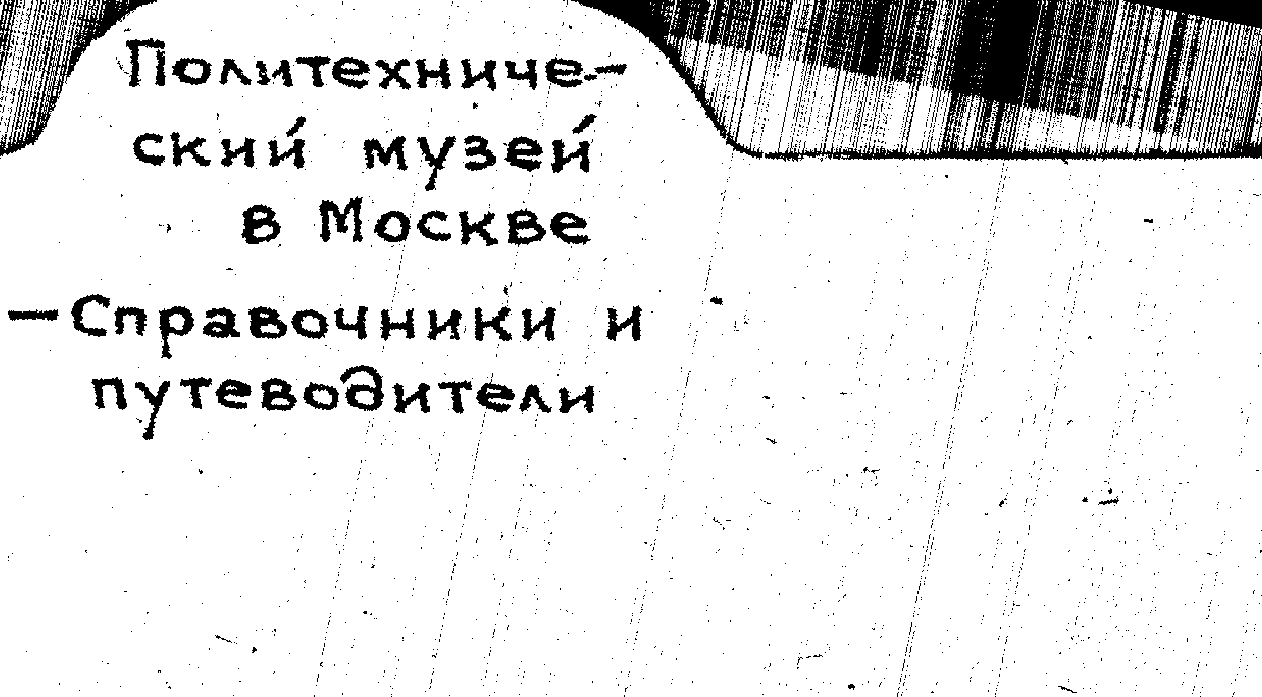 Политехниче-
ский музей
в Москве
— Справочники и
путеводители